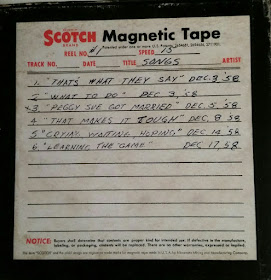 SCOTCH Magnetic Tape
BRAND
REEL NO. #1 SPEED 15
TRACK NO. DATE TITLE SONGS ARTIST
1 "THAT'S WHAT THEY SAY" DEC. 3, '58
2 "WHAT TO DO" DEC 3, '58
3 "PEGGY SUE GOT MARRIED" DEC. 5, '58
4 "THAT MAKES IT TOUGH" DEC, 8 '58
5 "CRYIN, WAITING HOPING" DEC 14 '58
6 "LEARNING THE GAME" DEC 17, '58
NOTICE: